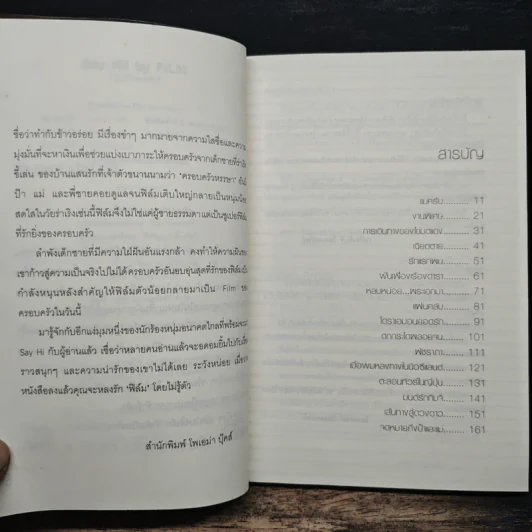 ชื่อว่าทำกับข้าวอร่อย มีเรื่องขำๆ มากมายจากความใสซื่อและความ
มุ่งมั่นที่จะหาเงินเพื่อช่วยแบ่งเบาภาระให้ครอบครัวจากเด็กชายที่ร่าเริง
ขี้เล่น ของบ้านแสนรักที่เจ้าตัวขนานนามว่า 'ครอบครัวหรรษา' อันมี
ป๊า แม่ และพี่ชายคอยดูแลจนฟิล์มเติบใหญ่กลายเป็นหนุ่มน้อย
สดใสในวัยร่าเริงเช่นนี้ฟิล์มจึงไม่ใช่แค่ผู้ชายธรรมดา แต่เป็นซูเปอร์ฟิล์ม
ที่รักยิ่งของครอบครัว
ลำพังเด็กชายที่มีความใฝ่ฝันอันแรงกล้า คงทำให้ความฝันของ
เขาก้าวสู่ความเป็นจริงไปไม่ได้ ครอบครัวอันอบอุ่นสุดที่รักของฟิล์ม
กำลังหนุนหลังสำคัญให้ฟิล์มตัวน้อยกลายมาเป็น Film ของ
ครอบครัวในวันนี้
มารู้จักกับอีกแง่มุมหนึ่งของนักร้องหนุ่มอนาคตไกลที่พร้อมจะมา
Say Hi กับผู้อ่านแล้ว เชื่อว่าหลายคนอ่านแล้วจะอดอมยิ้มไปกับ
ราวสนุกๆ และความน่ารักของเขาไม่ได้เลย ระวังหน่อย เมื่อ
หนังสือลงแล้วคุณจะหลงรัก 'ฟิล์ม' โดยไม่รู้ตัว
สำนักพิมพ์ โพเอม่า บุ๊คส์
สารบัญ
เมครับ 11
งานพิเศษ 21
การเดินทางของไข่มดแดง 31
เฉียดตาย 41
รักแรกพบ 51
ฟันเฟืองหรือดารา 61
หล่นหน่อย...พระเอกมา 71
แฟนครับ 81
โดราเอมอนยอดรัก 91
ตกกระไดพลอยโจน 101
พี่ชายกา 111
เมื่อผมหลงทางในนิวซีแลนด์ 121
ตะลอนทัวร์ในญี่ปุ่น 131
มนต์รักกิมจิ 141
เส้นทางสู่ดวงดาว 151
จดหมายถึงป๊าและแม่ 161